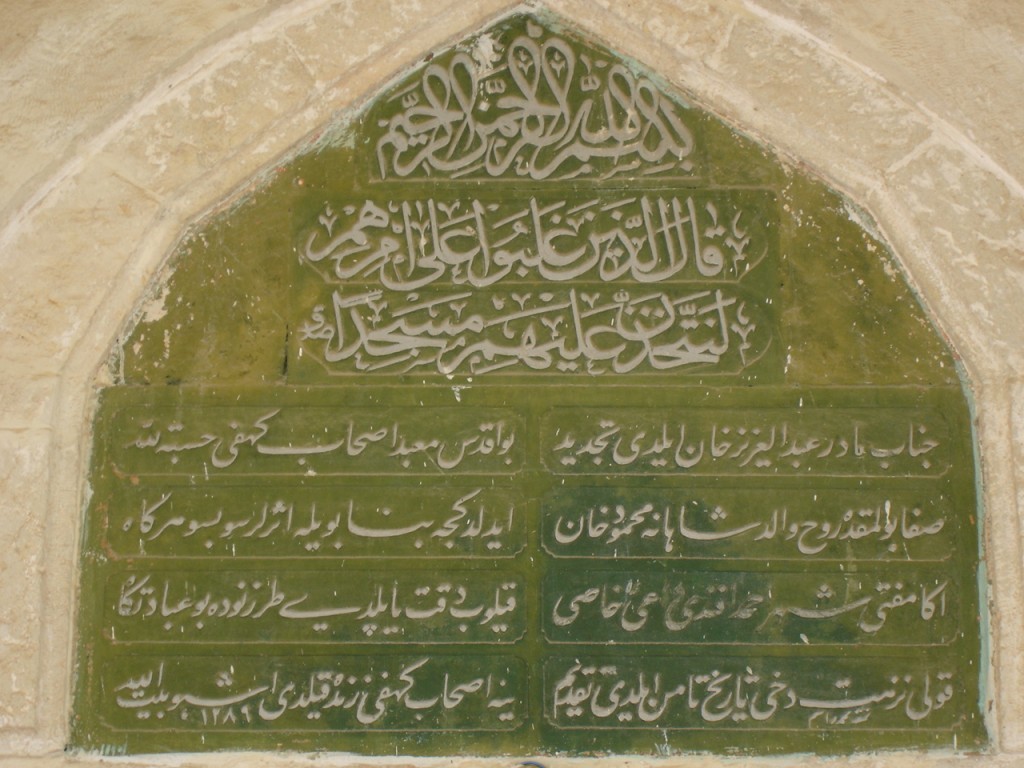 بسم الله الرحمن الرحيم
قال الذين غلبوا على امرهم
لنتخذن عليهم مسجدا
جناب مادر عبد العزيز خان ايلدى تجديد
بو اقدس معبد اصحاب كهفى حسبة لله
صفا بولمقده روح والد شاهانه محمود خان
ايدلدكجه بنا بويله اثرلر سو بسو هر كاه
اكا مفتئ شهر افندى داعئ خاصى
قيلوب دقت ياپلديے طرز نوده بو عبادتكا
قولى نزهت دخى تاريخ تامن ايلدى تقديم
ينه اصحاب كهفى زنده قيلدى اشبو بيت الله
١٢٨٩